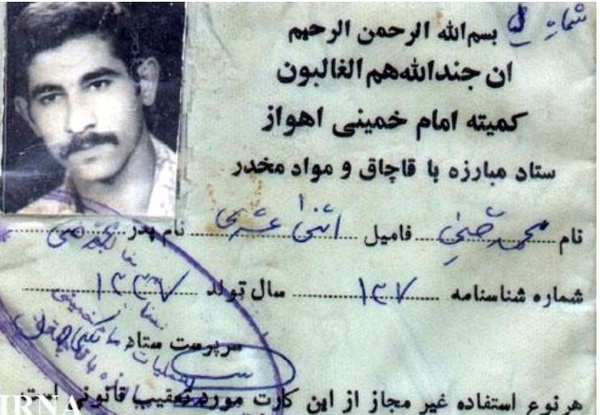 شماره
بسم‌الله الرحمن الرحیم
ان جندالله هم الغالبون
کمیته امام خمینی اهواز
ستاد مبارزه با قاچاق و مواد مخدر
نام محمد فامیل اثنی عشری نام پدر
شماره شناسنامه ۱۳۷ سال تولد ۱۳۳۷
سرپرست ستاد
هر نوع استفاده غیر مجاز از این کارت مورد تعقیب قانونی است
IRNA